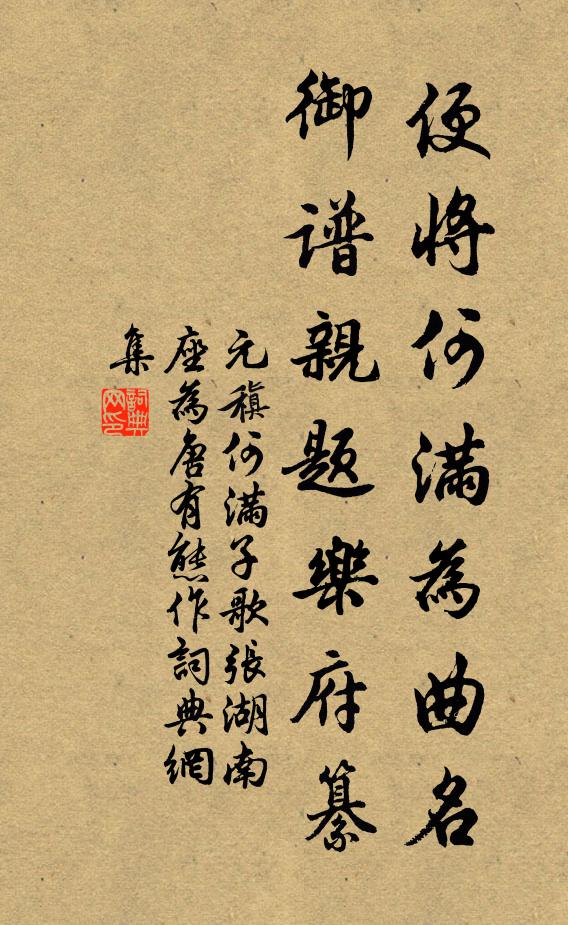 便將何滿為曲名
御譜親題樂府纂
元稹何滿子歌張湖南
座為唐有熊作詞典網
集
詞典
网印